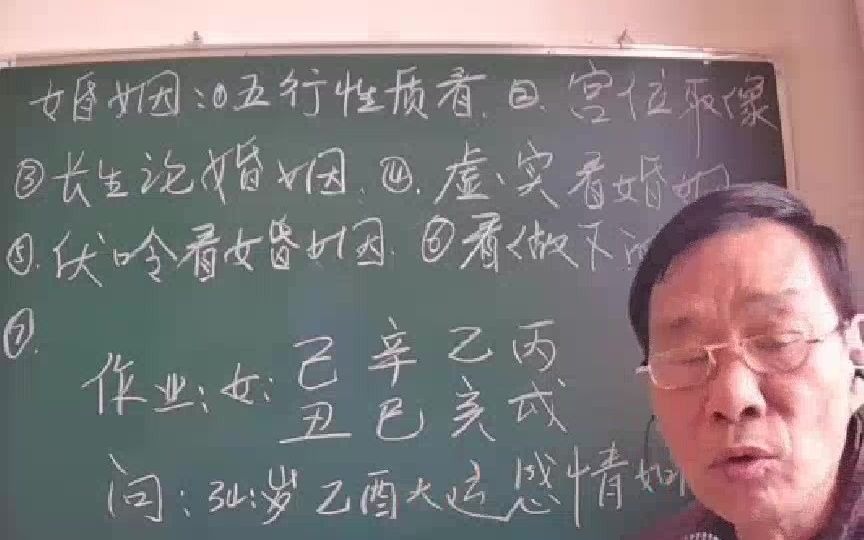 婚姻:①五行性质看.②.宫位取像
③长生论婚姻.④.虚实看婚姻
⑤.伏呤看婚姻.⑥看做下
⑦.
作业:女:己辛乙丙
丑巳亥戌
问:34岁乙酉大运感情如